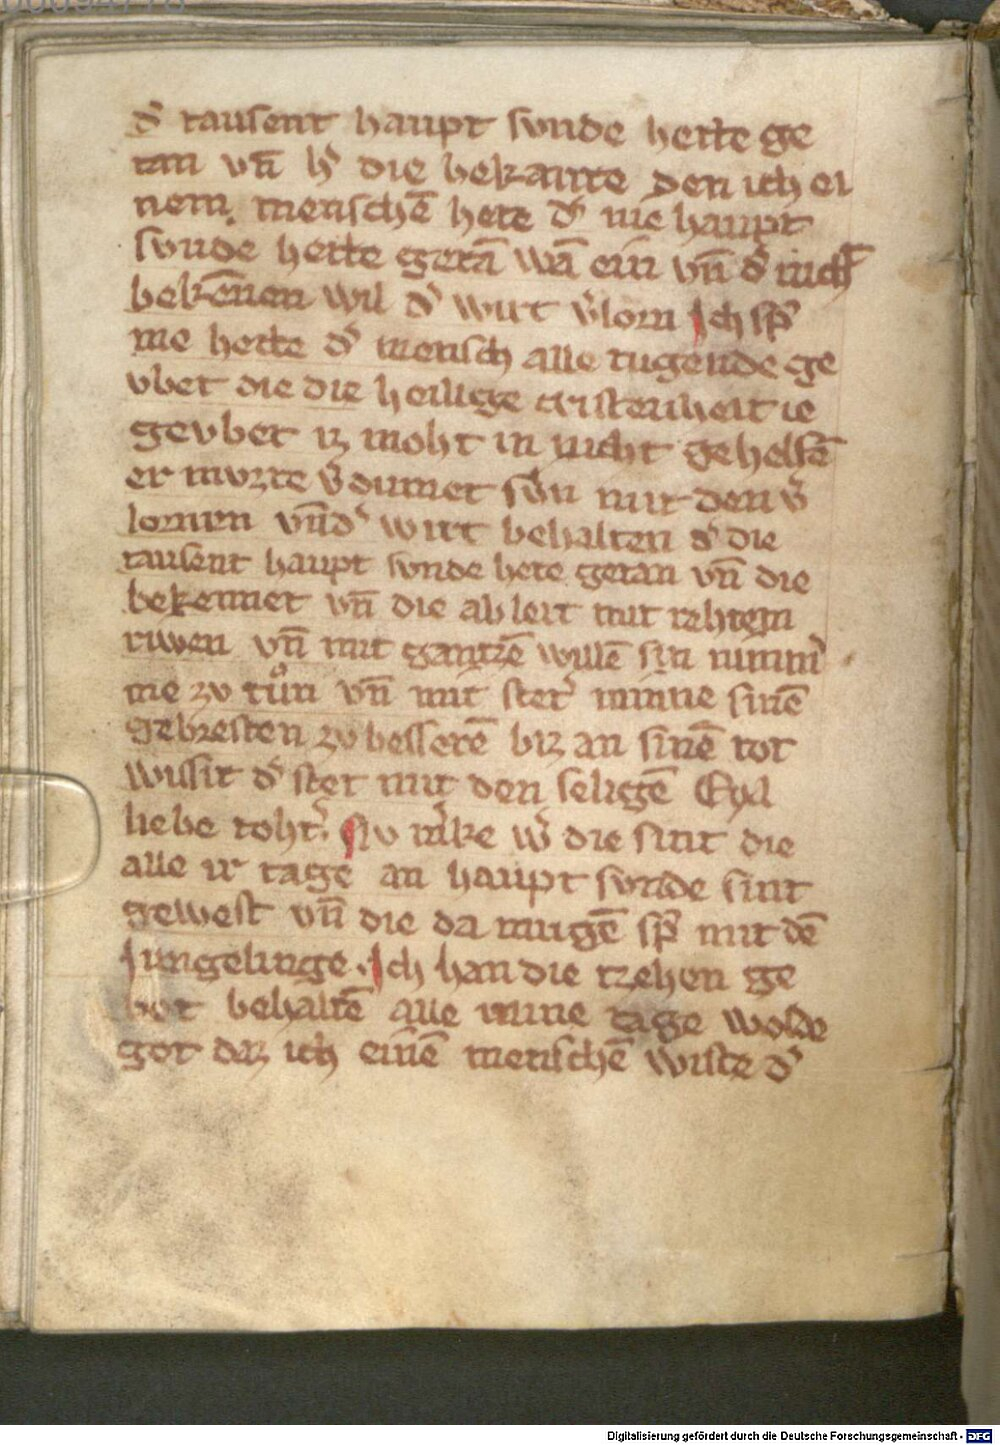 dˀ tausent haupt sunde hette ge
tan vn̄ hˀ die bekante den ich ei
nem menschē hete dˀ nie haupt
sunde hette getā wā ein vn̄ dˀ
bekēnen wil dˀ wirt vˀlorn Ich spˀ
me hette dˀ mensch alle tugende ge
vbet die die heilige cristenheit ie
gevbet iz moht in nicht gehelfē
er mvzte vˀdumet sin mit den vˀ
lornen vn̄ dˀ wirt behalten dˀ die
tausent haupt sunde hete getan vn̄ die
bekennet vn̄ die ableit mit rehtem
riwen vn̄ mit gantzē willē sin nimmˀ
me zv tůn vn̄ mit stetˀ minne sinē
gebresten zv besserē biz an sinē tot
wissit dˀ stet mit den seligē Eya
liebe tohtˀ Nv mˀke wˀ die sint die
alle ir tage an haupt sunde sint
gewest vn̄ die da mugē spˀ mit dē
iungelinge. Ich han die tzehen ge
bot behaltē alle mine tage wolde
got daz ich einē menschē wiste dˀ
Digitalisierung gefördert durch die Deutsche Forschungsgemeinschaft - DFG